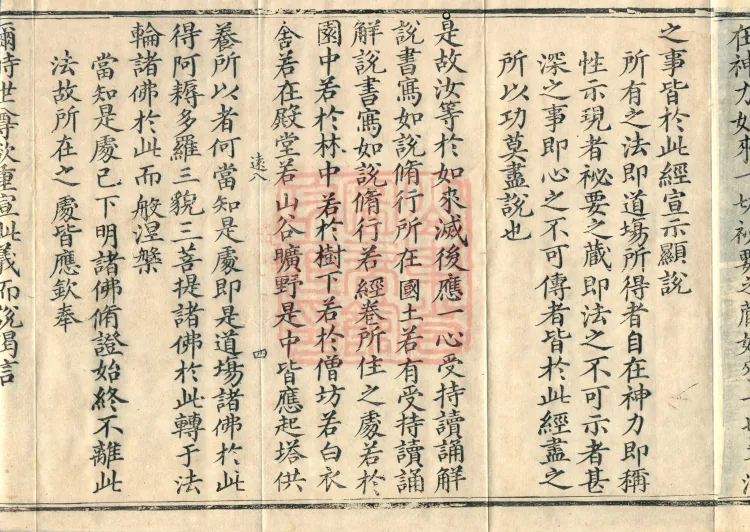 在神力如來一切祕要之藏如來一切甚深
之事皆於此經宣示顯說
所有之法即道場所得者自在神力即稱
性示現者祕要之蔵即法之不可示者甚
深之事即心之不可傳者皆於此經盡之
所以功莫盡說也
是故汝等於如來滅後應一心受持讀誦解
說書寫如說脩行所在國土若有受持讀誦
解說書寫如說脩行若經卷所住之處若於
園中若於林中若於樹下若於僧坊若白衣
舍若在殿堂若山谷曠野是中皆應起塔供
遠八 四
養所以者何當知是處即是道場諸佛於此
得阿耨多羅三藐三菩提諸佛於此轉于法
輪諸佛於此而般涅槃
當知是處已下明諸佛脩證始終不離此
法故所在之處皆應欽奉
爾時世尊欲重宣此義而說偈言